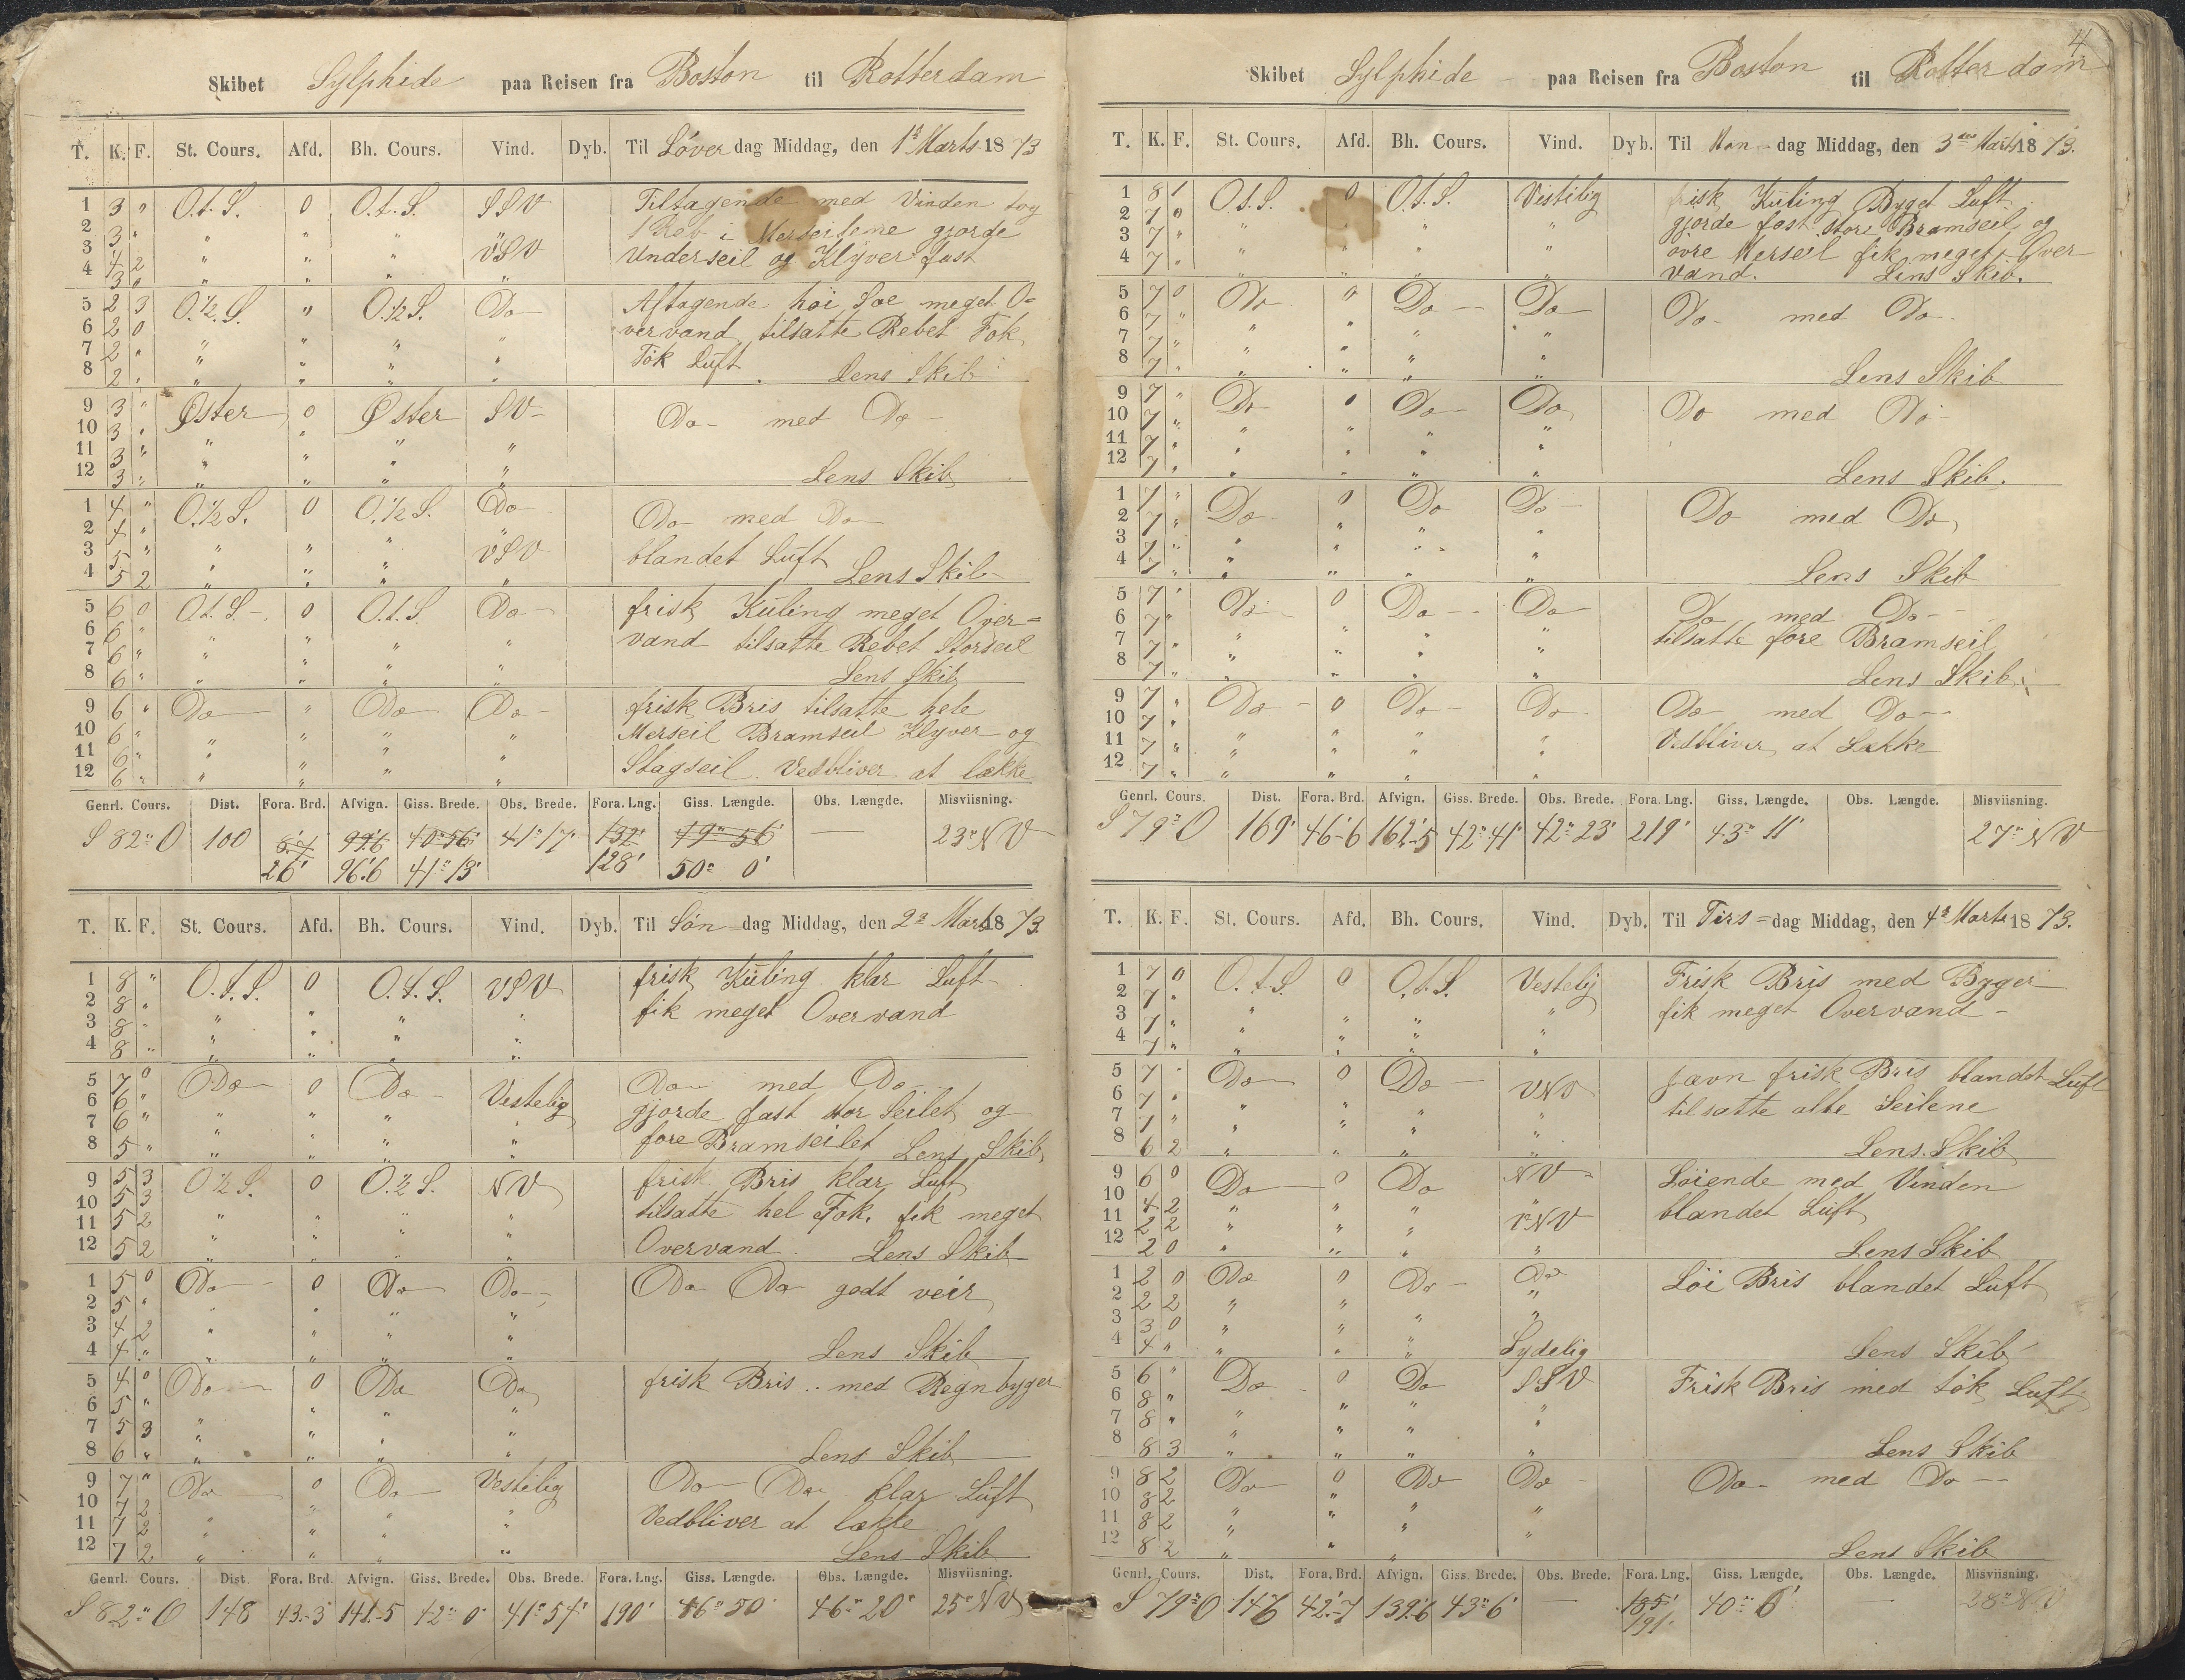 Skibet Sylphide paa Reisen fra Boston til Rotterdam
T. K. F. St. Cours. Afd. Bh. Cours. Vind. Dyb. Til Löver dag Middag, den 1s Marts 1873
1 3 " O.t.S. 0 O.t.S. SSV Tiltagende med Vinden tog
2 3 " " " " 1 Reb i Merseilene gjorde
3 4 2 " " " VSV Underseil og Klyver fast
4 3 0 " " " "
5 2 3 O.½.S. " O.½S. Do Aftagende höi Söe meget O-
6 2 0 vervand tilsatte Rebet Fok
7 2 " " " " " Tök Luft
8 2 " " " " " Lens Skib
9 3 " Öster 0 Öster SV Do med Do
10 3 " "
11 3 " " " " "
12 3 " " " " " Lens Skib
1 4 " O.½S. 0 O.½S. Do Do med Do
2 4 "
3 5 " " " " VSV blandet Luft
4 5 2 " " " " Lens Skib
5 6 0 O.t.S. 0 O.t.S. Do frisk Kuling meget Over=
6 6 " " " " " vand tilsatte Rebet Storseil
7 6 " " " " "
8 6 " " " " " Lens Skib
9 6 " Do " Do Do frisk Bris tilsatte hele
10 6 " " " " " Merseil Bramseil Klyver og
11 6 " " " " Stagseil. Vedbliver at lække
12 6 " " " " "
Genrl. Cours. Dist. Fora. Brd. Afvign. Giss. Brede. Obs. Brede. Fora. Lng. Giss. Længde. Obs. Længde. Misviisning.
S 82° O 100 8.7 99.6 40° 56' 41° 17' 132' 49° 56' 23° NV
26' 96.6 41° 13' 128' 50° 0'
T. K. F. St. Cours. Afd. Bh. Cours. Vind. Dyb. Til Sön=dag Middag, den 2s Marts 1873.
1 8 " O.t.S. 0 O.t.S. VSV frisk Kuling klar Luft
2 8 " " " " " fik meget Overvand
3 8 " " " " "
4 8 " " " " "
5 7 0 Do 0 Do Vestelig Do med Do
6 6 " " " " gjorde fast stor Seilet og
7 6 " " " " " fore Bramseilet
8 5 " " " " " Lens Skib
9 5 3 O½S. 0 O.½S. NV frisk Bris klar Luft
10 5 3 tilsatte hel Fok. fik meget
11 5 2 " " " " Overvand.
12 5 2 " " " " Lens Skib
1 5 0 Do 0 Do Do Do Do godt veir
2 5 " " " " "
3 4 2 " " " "
4 4 " " " " " Lens Skib
5 4 0 Do 0 Do Do frisk Bris .. med Regnbyger
6 5 " " " "
7 5 3 " " " "
8 6 " " " " " Lens Skib
9 7 " Do 0 Do Vestelig Do Do klar Luft
10 7 2 " Vedbliver at lække
11 7 2 " " " "
12 7 2 " " " " Lens Skib
Genrl. Cours. Dist. Fora. Brd. Afvign. Giss. Brede. Obs. Brede. Fora. Lng. Giss. Længde. Obs. Længde. Misviisning.
S 82° O 148 43.-3 141.-5 42° 0' 41° 54' 190' 46° 50' 46° 20' 25° NV
4
Skibet Sylphide paa Reisen fra Boston til Rotterdam
T. K. F. St. Cours. Afd. Bh. Cours. Vind. Dyb. Til Man=dag Middag, den 3die Marts 1873.
1 8 1 O.t.S. 0 O.t.S. Vestelig frisk Kuling Byget Luft
2 7 0 " " " " gjorde fast store Bramseil og
3 7 " övre Merseil fik meget Over
4 7 " " " " " vand. Lens Skib.
5 7 0 Do 0 Do Do Do med Do
6 7 " " " " "
7 7 " " " "
8 7 " " " " " Lens Skib
9 7 " Do 0 Do Do Do med Do
10 7 " " " " "
11 7 " " " "
12 7 " " " " " Lens Skib.
1 7 " Do 0 Do Do Do med Do
2 7 " "
3 7 " " " " "
4 7 " " " " " Lens Skib
5 7 " Do 0 Do Do Do med Do
6 7 " " " " " tilsatte fore Bramseil
7 7 " " " "
8 7 " " " " " Lens Skib
9 7 " Do 0 Do Do Do med Do
10 7 " " " " Vedbliver at Lække
11 7 " " " " "
12 7 " " " " "
Genrl. Cours. Dist. Fora. Brd. Afvign. Giss. Brede. Obs. Brede. Fora. Lng. Giss. Længde. Obs. Længde. Misviisning.
S 79° O 169' 46'-6 162'-5 42° 41' 42° 23' 219' 43° 11' 27° NV
T. K. F. St. Cours. Afd. Bh. Cours. Vind. Dyb. Til Tirs=dag Middag, den 4s Marts 1873.
1 7 0 O.t.S. 0 O.t.S. Vestelig Frisk Bris med Byger
2 7 " " fik meget Overvand
3 7 " " " " "
4 7 " " " " "
5 7 " Do 0 Do VNV jævn frisk Bris blandet Luft
6 7 " " " " " tilsatte alle Seilene
7 7 " " " "
8 6 2 " " " " Lens Skib
9 6 0 Do 0 Do NV Löiende med Vinden
10 4 2 " " " " blandet Luft
11 2 2 " " " VNV
12 2 0 " " " " Lens Skib
1 2 0 Do 0 Do Do Löi Bris blandet Luft
2 2 2 " " "
3 3 0 " " " "
4 4 " " " " Sydelig Lens Skib
5 6 " Do 0 Do SSV Frisk Bris med tök Luft
6 8 " " " " "
7 8 " " " " "
8 8 3 " " " " Lens Skib
9 8 2 Do 0 Do Do Do med Do
10 8 2 " " " "
11 8 2 " " " "
12 8 2 " " " Lens Skib
Genrl. Cours. Dist. Fora. Brd. Afvign. Giss. Brede. Obs. Brede. Fora. Lng. Giss. Længde. Obs. Længde. Misviisning.
S 79° O 146 42'.-7 139.6 43° 6' — 185' 40° 6' — 28° NV
191'